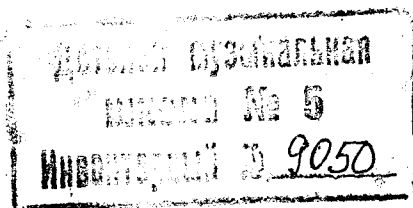 Детская музыкальная
школа № 6
Инвентарный № 9050